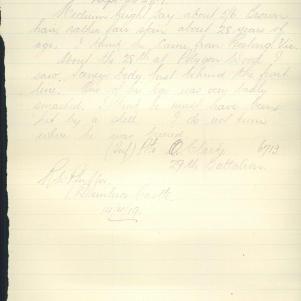 Medium height say about 5/6 Brown
hair rather fair skin about 28 years of
age. I think he came from Geelong Vic
About the 28th at Polygon Wood I
saw body just behind the front
line. One of his legs was very badly
smashed. I think he must have been
hit by a shell. I do not know
where he was buried.
(Inf) Pte Clark 6713
29th Battalion